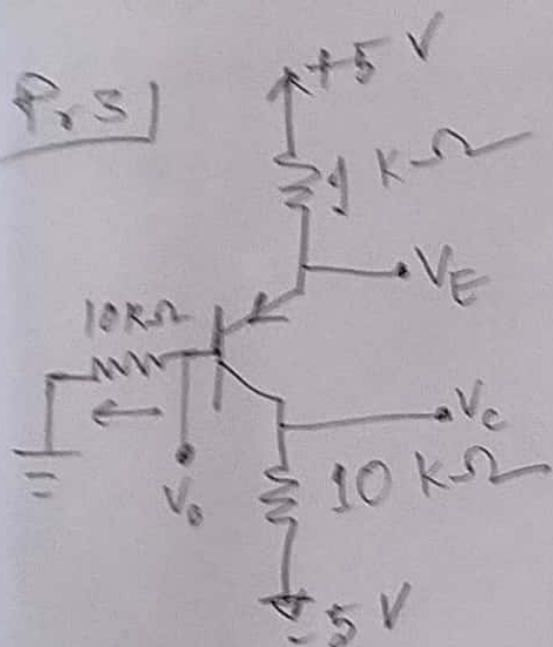 +5 V
Pr 5
1 KΩ
VE
10KΩ
VC
VB
10 KΩ
-5 V